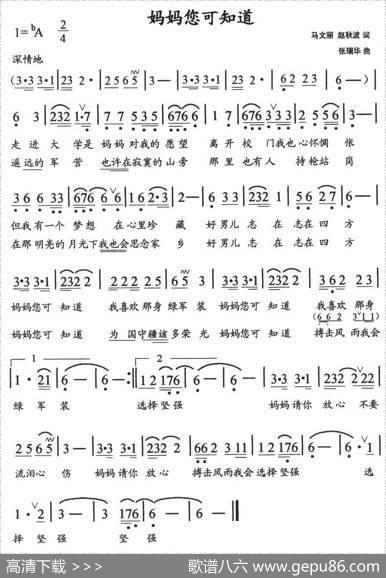 妈妈您可知道
1=♭A 2/4
马文丽 赵秋波 词
张瑞华 曲
深情地
(3·3 3·1 | 23 2· | 2 5 6 5 | 3 — | 3·3 3·1 | 23 2· | 6 2 2 3 | 6 —)
6 3 | 232 1·7 | 7·7 5 35 | 6766 6 | 3 6 | 7·6 3·3 3 | 232 1 2 | 3 —
走 进 大 学是 妈妈 对我的 愿望 离 开 校 门我也 心怀惆 张
遥远的 军 营 也许在 寂寞的 山旁 那 里 也有人 持枪站 岗
3 6 6 33 | 676 6 6 | 1 6 2·3 | 2 — | 6·1 3·3 | 232 1 2 | 5 5 6 2 7 | 6 —
但我 有一个 梦想 在 心里 珍 藏 好男儿 志 在 志在 四 方
在那 明亮的 月光下 我也会 思念家 乡 好男儿 志 在 志在 四 方
3·3 3·1 | 232 2 | 2 2 2 2 3 | 6 5 3 | 3·3 3·1 | 232 2 | 3 6 2 2 3
妈妈您可 知 道 我喜欢 那身 绿军 装 妈妈您可 知 道 我喜 那身
妈妈您可 知 道 为 国 守疆该 多荣 光 妈妈您可 知 道 搏击风雨我会
1 · 21 | 6 — | 6 — :‖ 1 2 176 | 6 — | 6 — | 3·3 3·1 | 232 2 22
绿 军 装 选择 坚强 妈妈 请你 放 心 不 要
2 5 6 5 | 3 — | 3·3 3·1 | 232 2 | 66 2 3 11 | 1 2 176 | 6 — | 6 · 1
流泪心 伤 妈妈 请你 放 心 搏击 风雨我会 选择 坚强 选
1 · 2 | 3 — | 3 176 | 6 — | 6 — ‖
择 坚 强 坚 强
高清下载 >>>
歌谱八六 www.gepu86.com